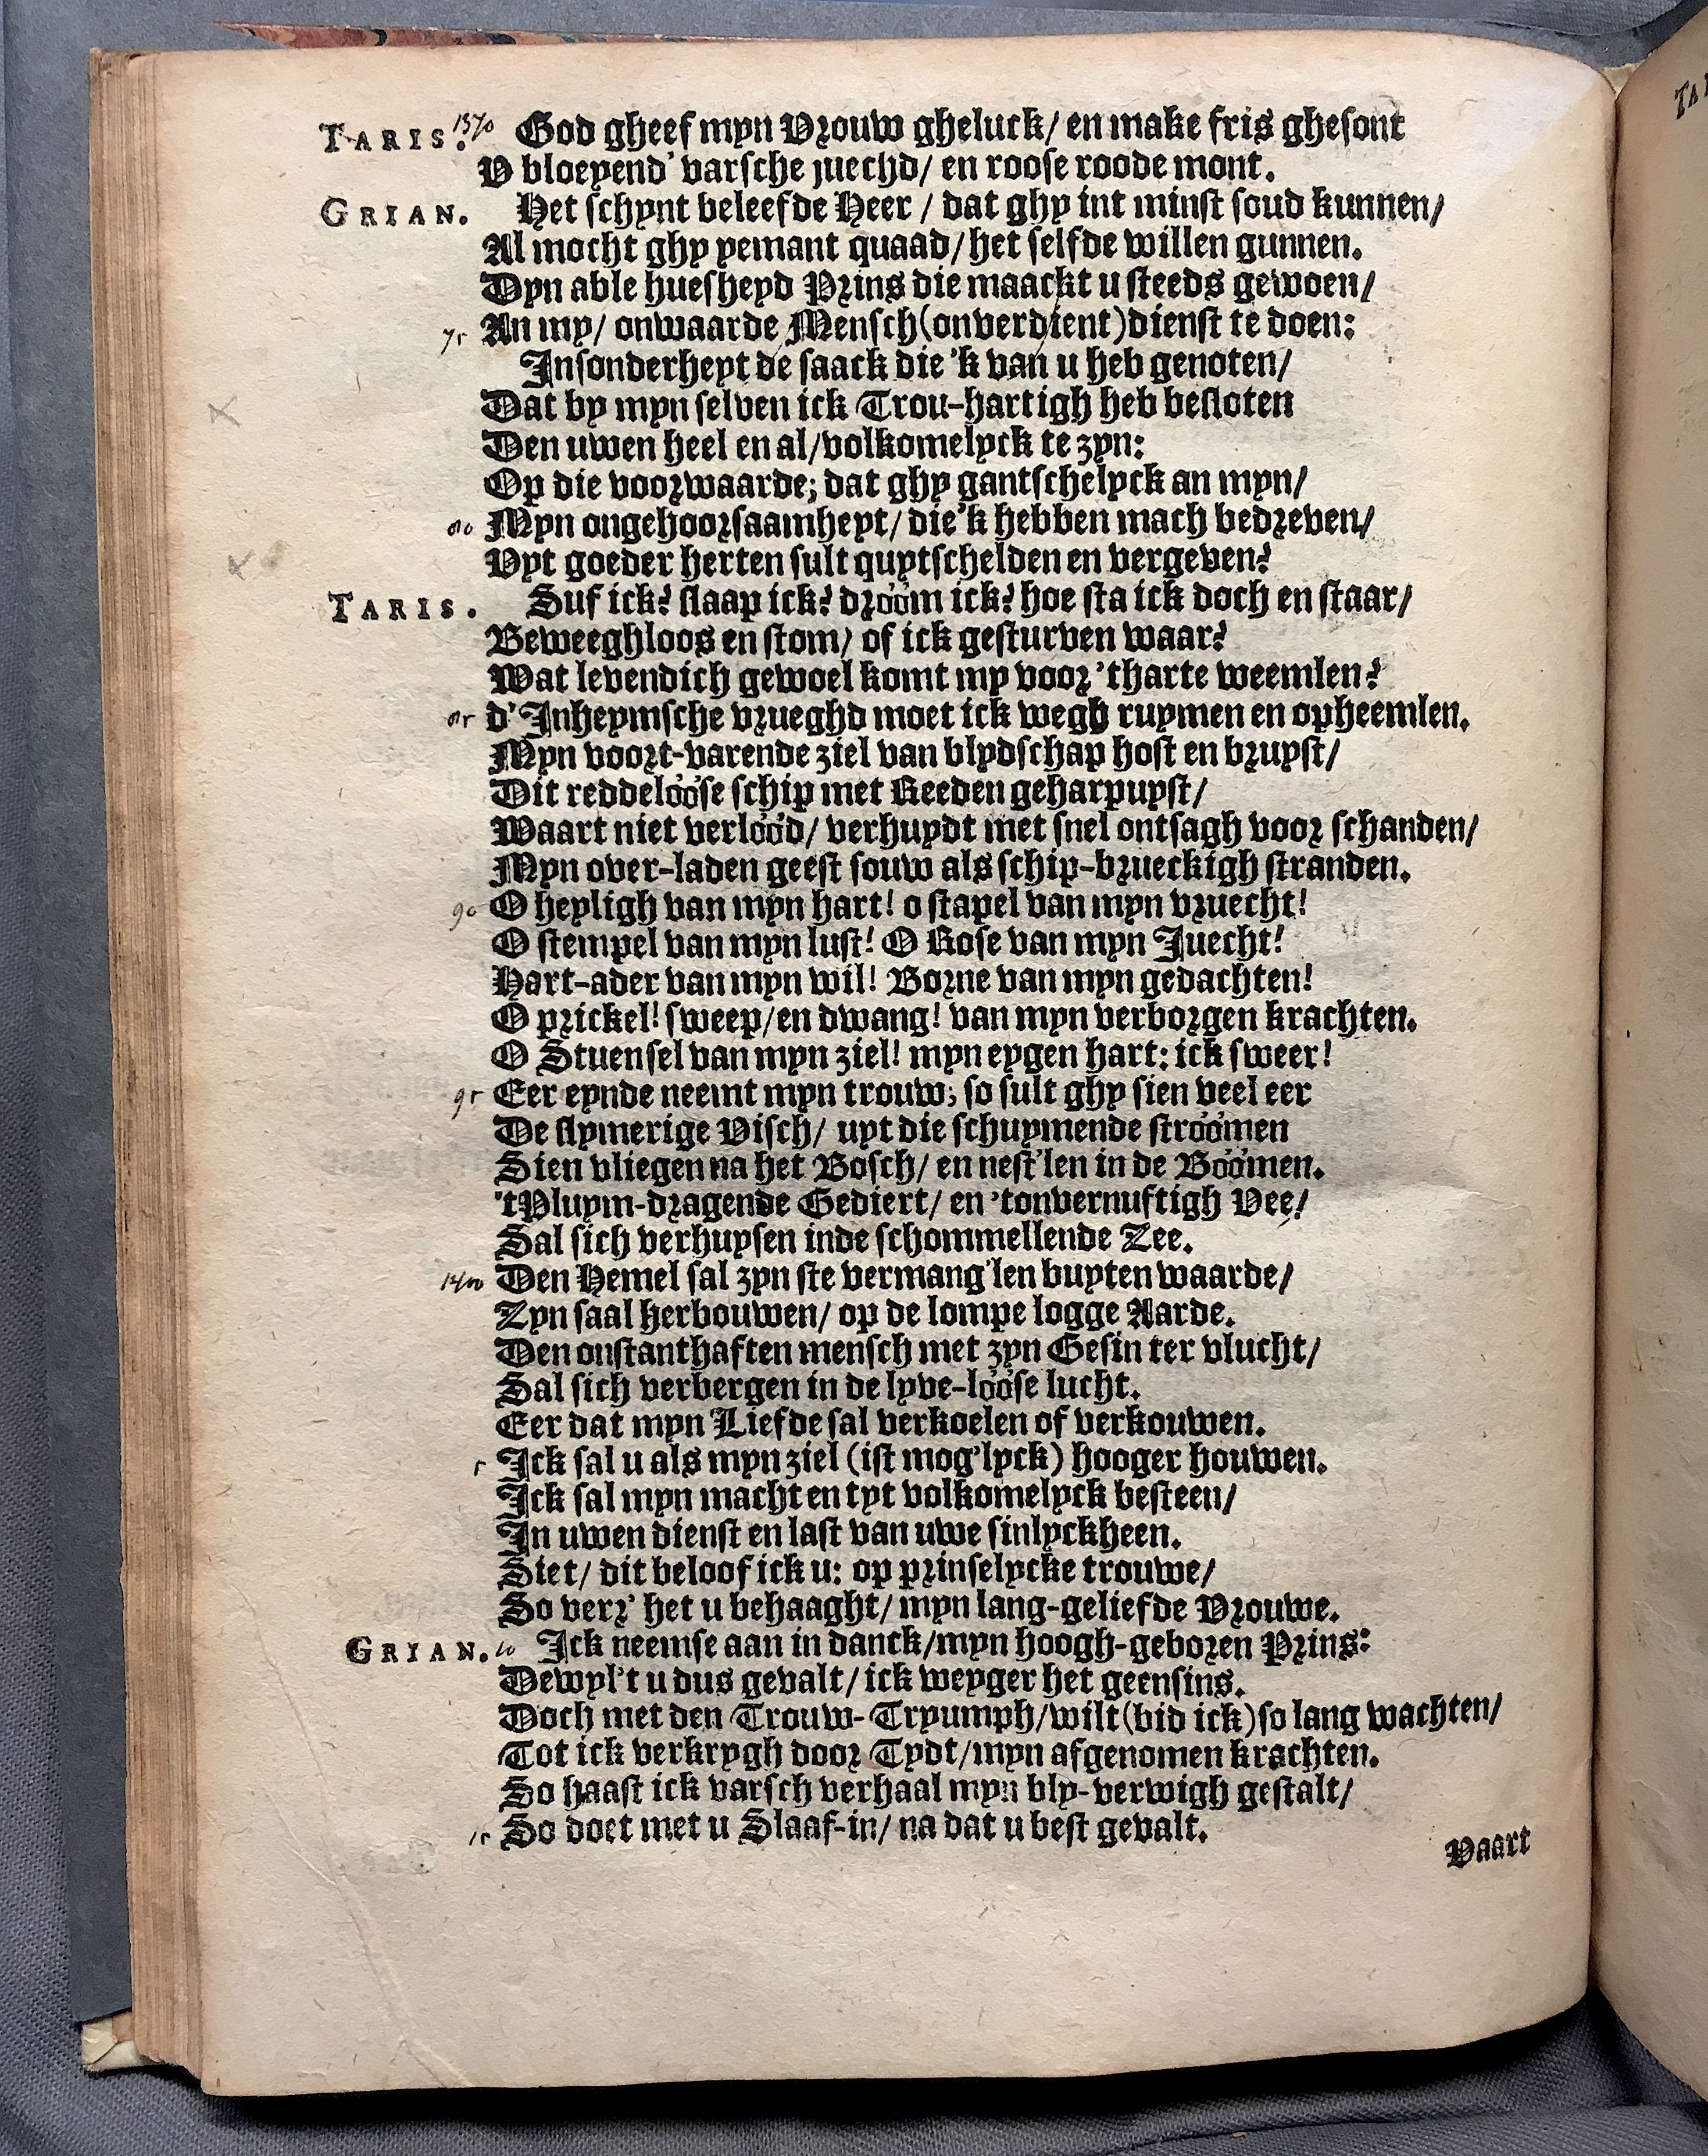 TARIS. 1370 God gheef myn Vrouw gheluck/ en make fris ghesont
V bloeyend' varsche juechd/ en roose roode mont.
GRIAN. Het schynt beleefde Heer / dat ghy int minst soud kunnen/
Al mocht ghy yemant quaad/ het selfde willen gunnen.
Dyn able huesheyd Prins die maackt u steeds gewoen/
75 An my/ onwaarde Mensch (onverdient) dienst te doen:
Insonderheyt de saack die 'k van u heb genoten/
Dat by myn selven ick Trou-hartigh heb besloten
Den uwen heel en al/ volkomelyck te zyn:
Op die voorwaarde; dat ghy gantschelyck an myn/
80 Myn ongehoorsaamheyt/ die 'k hebben mach bedreven/
Uyt goeder herten sult quytschelden en vergeven?
TARIS. Suf ick? slaap ick? dróóm ick? hoe sta ick doch en staar/
Beweeghloos en stom/ of ick gesturven waar?
Wat levendich gewoel komt my voor 'tharte weemlen?
85 d'Inheymsche vrueghd moet ick wegh ruymen en opheemlen.
Myn voort-varende ziel van blydschap host en bruyst/
Dit reddelóóse schip met Reeden geharpuyst/
Waart niet verlóód/ verhuydt met snel ontsagh voor schanden/
Myn over-laden geest souw als schip-brueckigh stranden.
90 O heyligh van myn hart! o stapel van myn vruecht!
O stempel van myn lust! O Rose van myn Juecht!
Hart-ader van myn wil! Borne van myn gedachten!
O prickel! sweep/ en dwang! van myn verborgen krachten.
O Stuensel van myn ziel! myn eygen hart: ick sweer!
95 Eer eynde neemt myn trouw; so sult ghy sien veel eer
De slymerige Visch/ uyt die schuymende stróómen
Sien vliegen na het Bosch/ en nest'len in de Bóómen.
'tPluym-dragende Gediert/ en 'tonvernuftigh Vee/
Sal sich verhuysen inde schommellende Zee.
1400 Den Hemel sal zyn ste vermang'len buyten waarde/
Zyn saal herbouwen/ op de lompe logge Aarde.
Den onstanthaften mensch met zyn Gesin ter vlucht/
Sal sich verbergen in de lyve-lóóse lucht.
Eer dat myn Liefde sal verkoelen of verkouwen.
5 Ick sal u als myn ziel (ist mog'lyck) hooger houwen.
Ick sal myn macht en tyt volkomelyck besteen/
In uwen dienst en last van uwe sinlyckheen.
Siet/ dit beloof ick u: op prinselycke trouwe/
So verr' het u behaaght/ myn lang-geliefde Vrouwe.
GRIAN. 10 Ick neemse aan in danck/ myn hoogh-geboren Prins:
Dewyl't u dus gevalt/ ick weyger het geensins.
Doch met den Trouw-Tryumph/ wilt (bid ick) so lang wachten/
Tot ick verkrygh door Tydt/ myn afgenomen krachten.
So haast ick varsch verhaal myn bly-verwigh gestalt/
15 So doet met u Slaaf-in/ na dat u best gevalt.
Vaart